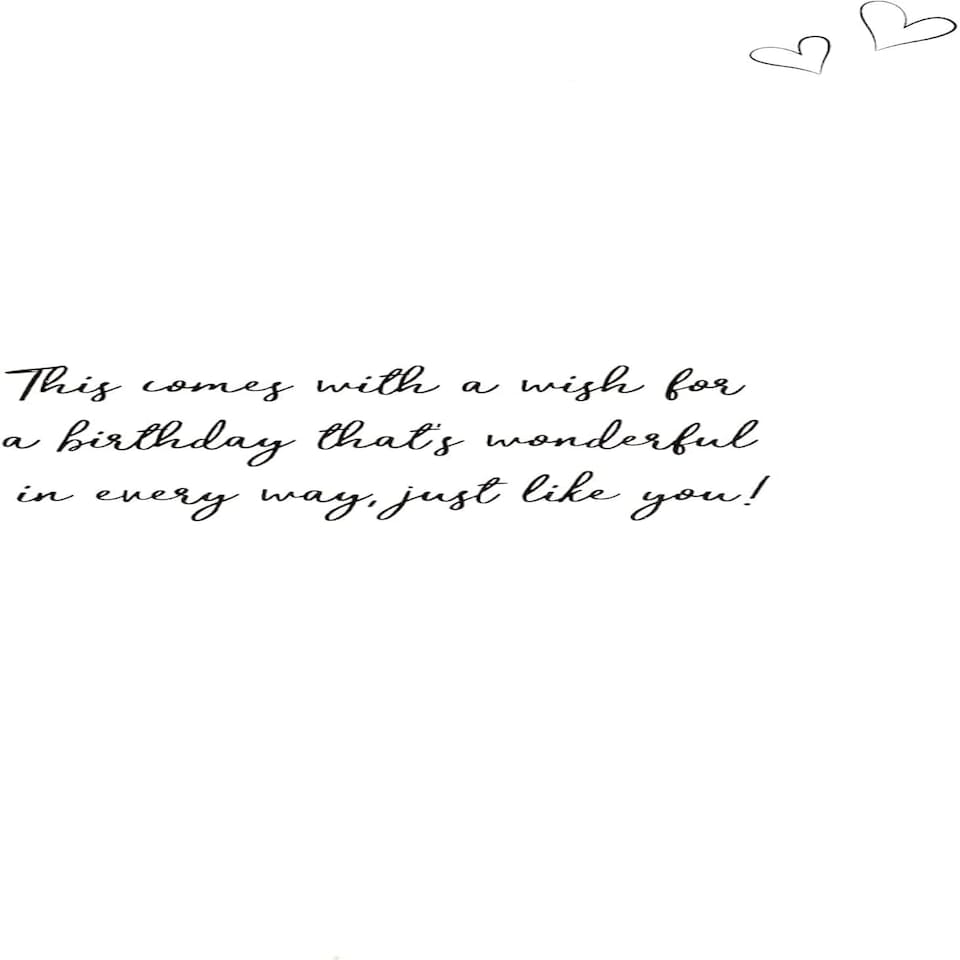 This comes with a wish for
a birthday that's wonderful
in every way, just like you!